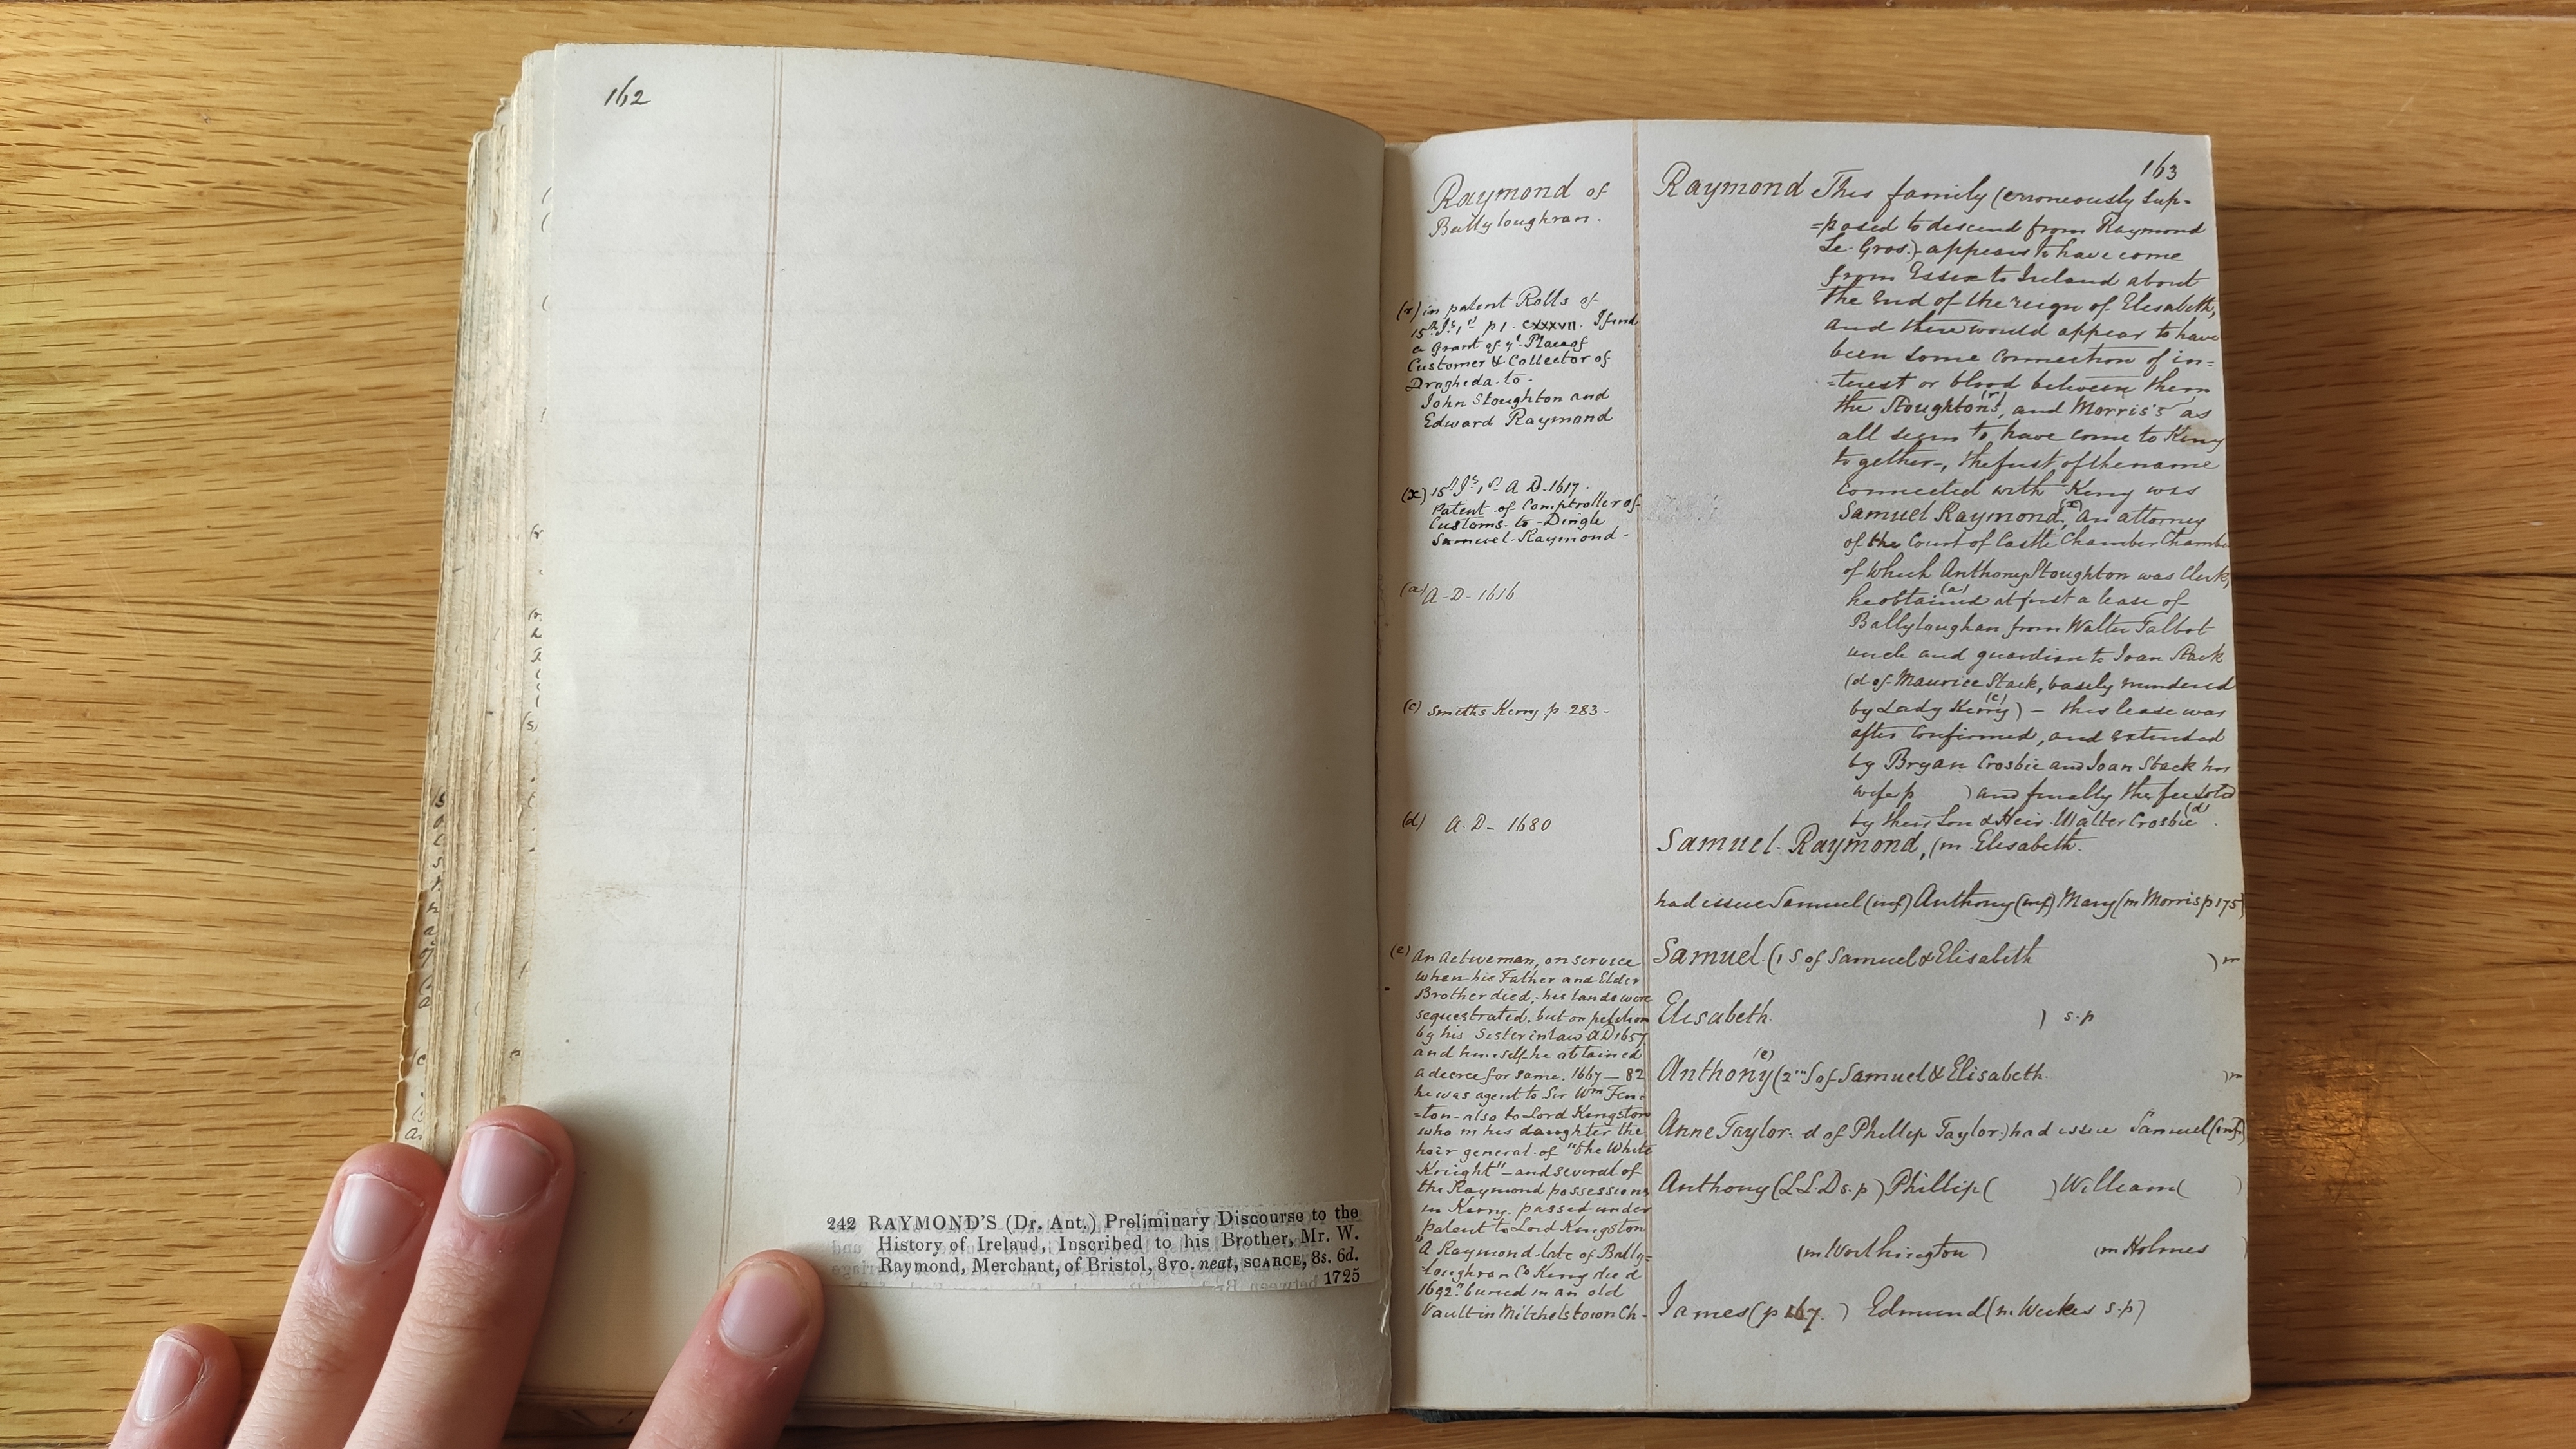 162
242 RAYMOND'S (Dr. Ant.) Preliminary Discourse to the
History of Ireland, Inscribed to his Brother, Mr. W.
Raymond, Merchant, of Bristol, 8vo. neat, SCARCE, 8s. 6d.
1725
163
Raymond of
Ballyloughran.
(r) in patent Rolls of
15th Js. 1st p 1. CXXXVII. I find
a Grant of ye Place of
Customer & Collector of
Drogheda to
John Stoughton and
Edward Raymond
(x) 15th Js. 1st A D 1617.
Patent of Comptroller of
Customs to Dingle
Samuel Raymond
(a) A-D-1616
(c) Smiths Kerry p. 283-
(d) A.D- 1680
(e) An Active man, on service
when his Father and Elder
Brother died; his lands were
sequestrated. but on petition
by his Sister in law AD 1657
and himself he obtained
a decree for same. 1667-82
he was agent to Sir Wm Fen=
=ton-also to Lord Kingston
who m his daughter the
heir general of "the White
Knight"-and several of
the Raymond possessions
in Kerry. passed under
patent to Lord Kingston
"A Raymond late of Bally=
loughran Co Kerry died
1692" buried in an old
Vault in Mitchelstown Ch-
Raymond This family (erroneously sup-
=posed to descend from Raymond
Le Gros.) appears to have come
from Essex to Ireland about
the end of the reign of Elisabeth,
and there would appear to have
been some connection of in=
=terest or blood between them
the Stoughtons(r), and Morris's as
all seem to have come to Kerry
together-, the first of the name
connected with Kerry was
Samuel Raymond(x), an attorney
of the Court of Castle Chamber Chamber
of which Anthony Stoughton was Clerk,
he obtained(a) at first a lease of
Ballyloughan from Walter Talbot
uncle and guardian to Joan Stack
(d of Maurice Stack, basely murdered
by Lady Kerry(c)) - this lease was
after confirmed, and extended
by Bryan Crosbie and Joan Stack his
wife p ) and finally the fee sold
by their Son & Heir Walter Crosbie(d).
Samuel Raymond, (m Elisabeth.
had issue Samuel (inf) Anthony (inf) Mary (m Morris p 175)
Samuel (1 S of Samuel & Elisabeth ) m
Elisabeth ) s.p
Anthony(e) (2nd S of Samuel & Elisabeth )m
Anne Taylor d of Phillip Taylor.) had issue Samuel (inf)
Anthony (L L D s.p) Phillip ( ) William ( )
(m Worthington) (m Holmes )
James (p 167. ) Edmund (m Weekes s.p)